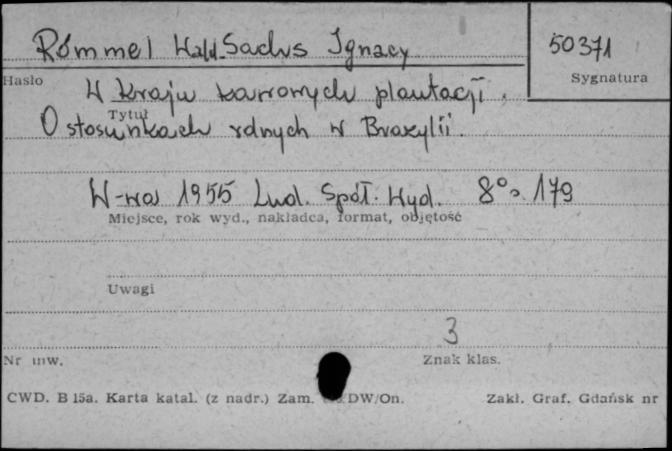 Rómmel Wald. Sachs Ignacy
50371
Hasło
Sygnatura
W kraju kawowych plantacji.
Tytuł
O stosunkach rolnych w Brazylii.
W-wa 1955 Lud. Spół. Wyd. 8°, 179
Miejsce, rok wyd., nakładca, format, objętość
Uwagi
3
Nr inw.
Znak klas.
CWD. B 15a. Karta katal. (z nadr.) Zam. DW/On.
Zakł. Graf. Gdańsk nr